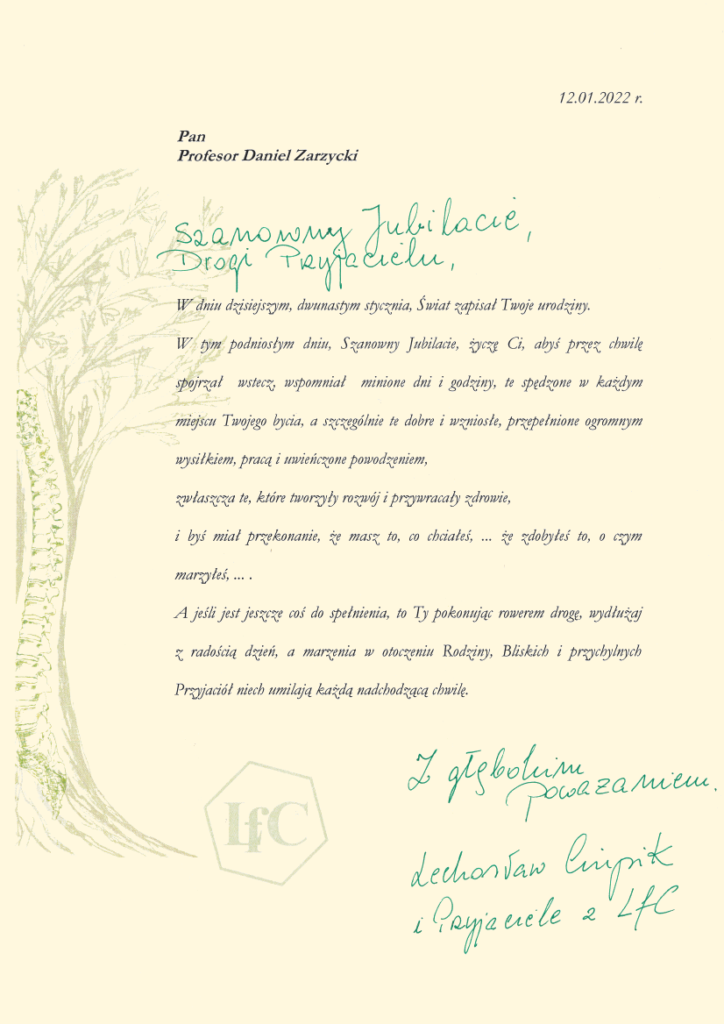 12.01.2022 r.
Pan
Profesor Daniel Zarzycki
Szanowny Jubilacie,
Drogi Przyjacielu,
W dniu dzisiejszym, dwunastym stycznia, Świat zapisał Twoje urodziny.
W tym podniosłym dniu, Szanowny Jubilacie, życzę Ci, abyś przez chwilę
spojrzał wstecz, wspomniał minione dni i godziny, te spędzone w każdym
miejscu Twojego bycia, a szczególnie te dobre i wzniosłe, przepełnione ogromnym
wysiłkiem, pracą i uwieńczone powodzeniem,
zwłaszcza te, które tworzyły rozwój i przywracały zdrowie,
i byś miał przekonanie, że masz to, co chciałeś, ... że zdobyłeś to, o czym
marzyłeś, ... .
A jeśli jest jeszcze coś do spełnienia, to Ty pokonując rowerem drogę, wydłużaj
z radością dzień, a marzenia w otoczeniu Rodziny, Bliskich i przychylnych
Przyjaciół niech umilają każdą nadchodzącą chwilę.
Z głębokim
poważaniem.
LfC
Lechosław Ciupik
i Przyjaciele z LfC